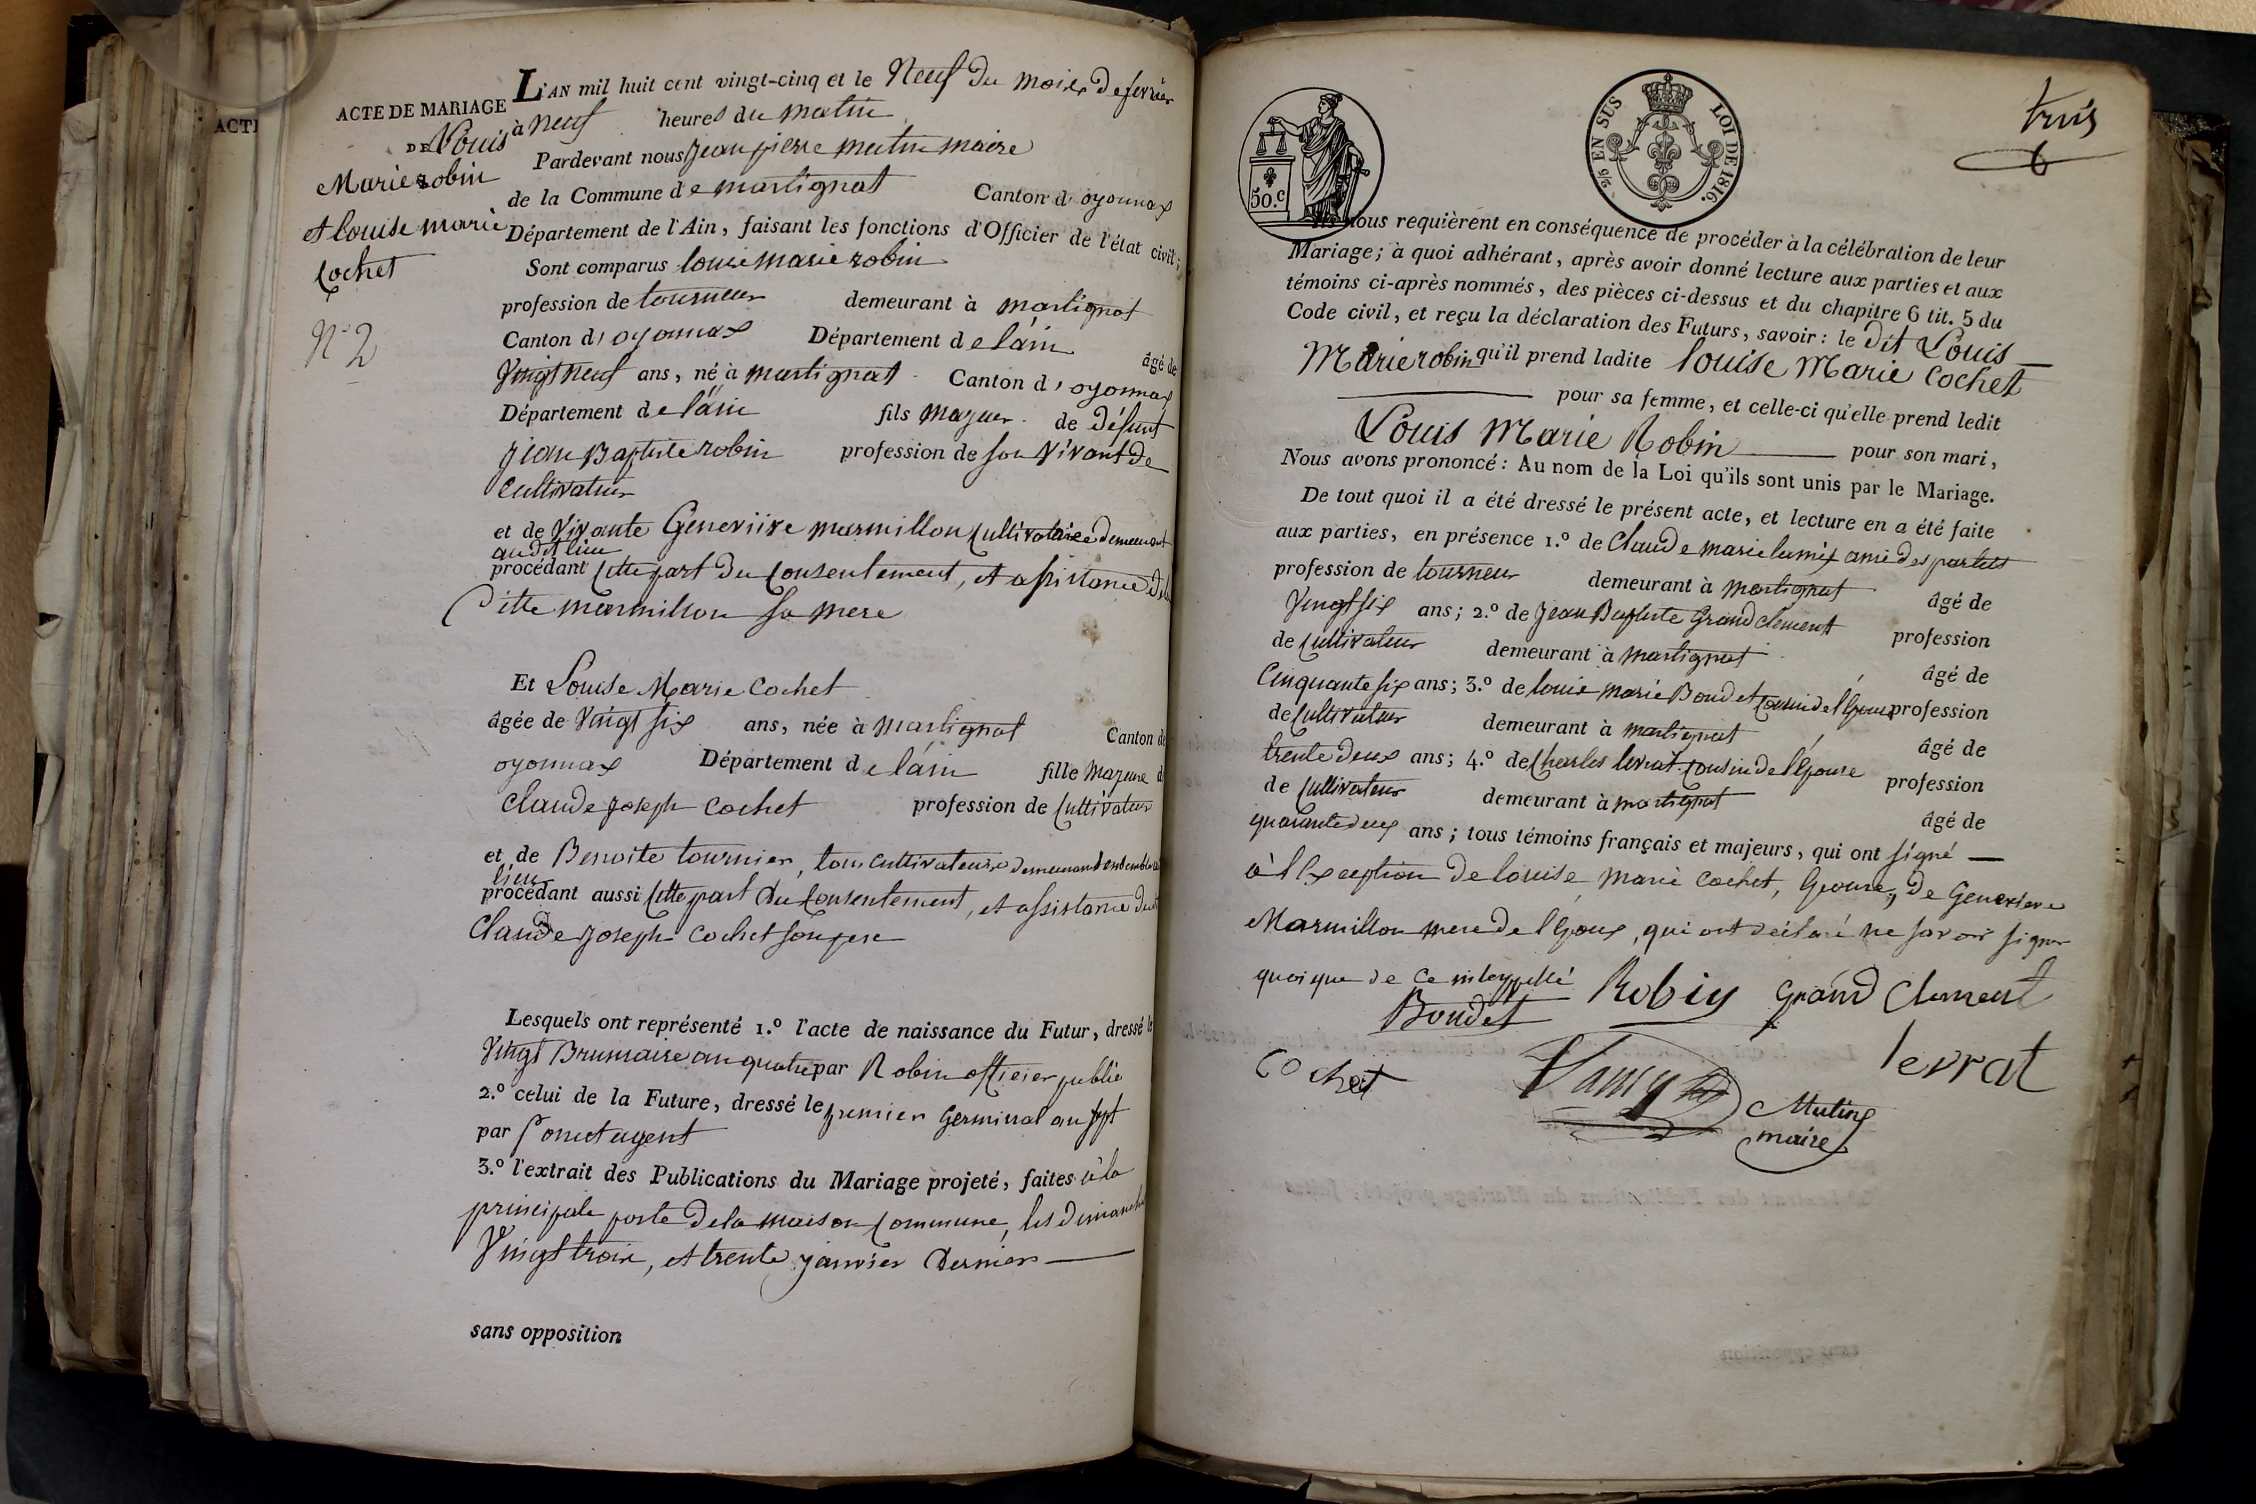 ACTE DE MARIAGE
DE Louis
Marie robin
et louise marie
Cochet
N.° 2
ACTE
L'AN mil huit cent vingt-cinq et le Neuf du mois de fevrier
à neuf heures du matin
Pardevant nous jean pierre mutin maire
de la Commune de martignat Canton d'oyonnax
Département de l'Ain, faisant les fonctions d'Officier de l'état civil;
Sont comparus louis marie robin
profession de tourneur demeurant à martignat
Canton d'oyonnax Département de l'ain âgé de
Vingt neuf ans, né à martignat Canton d'oyonnax
Département de l'ain fils majeur de défunt
jean Baptiste robin profession de son vivant de
cultivateur
et de vivante Geneviive marmillon cultivatrice demeurant
au dit lieu
procédant cette part du consentement, et assistance de la
ditte marmillon sa mere
Et Louise Marie Cochet
âgée de vingt six ans, née à martignat Canton de
oyonnax Département de l'ain fille majeure de
claude joseph cochet profession de cultivateur
et de Benoite tournier, tous cultivateurs demeurant ensemble au
lieu
procédant aussi cette part du consentement, et assistance du
Claude joseph cochet son pere
Lesquels ont représenté 1.° l'acte de naissance du Futur, dressé le
vingt Brumaire an quatre par Robin officier public
2.° celui de la Future, dressé le premier Germinal an sept
par agent
3.° l'extrait des Publications du Mariage projeté, faites à la
principale porte de la maison commune, les dimanche
vingt trois, et trente janvier dernier
sans opposition
50.c
2/5 EN SUS LOI DE 1816.
trois
6
nous requièrent en conséquence de procéder à la célébration de leur
Mariage; à quoi adhérant, après avoir donné lecture aux parties et aux
témoins ci-après nommés, des pièces ci-dessus et du chapitre 6 tit. 5 du
Code civil, et reçu la déclaration des Futurs, savoir: le dit Louis
Marie robin qu'il prend ladite louise Marie Cochet
pour sa femme, et celle-ci qu'elle prend ledit
Louis Marie Robin pour son mari,
Nous avons prononcé: Au nom de la Loi qu'ils sont unis par le Mariage.
De tout quoi il a été dressé le présent acte, et lecture en a été faite
aux parties, en présence 1.° de Claude marie ami des parties
profession de tourneur demeurant à martignat âgé de
vingt six ans; 2.° de jean Baptiste Grand clement profession
de cultivateur demeurant à martignat âgé de
Cinquante six ans; 3.° de louis marie Boudet cousin de l'Epoux profession
de cultivateur demeurant à martignat âgé de
trente deux ans; 4.° de Charles levrat cousin de l'Epouse profession
de cultivateur demeurant à martignat âgé de
quarante deux ans; tous témoins français et majeurs, qui ont signé
à l'exception de louise marie cochet, Epouse, de Genevieve
Marmillon mere de l'Epoux, qui ont déclaré ne savoir signer
quoique de ce interpellé
Robin Grand Clement
Boudet
Cochet levrat
Mutin
maire